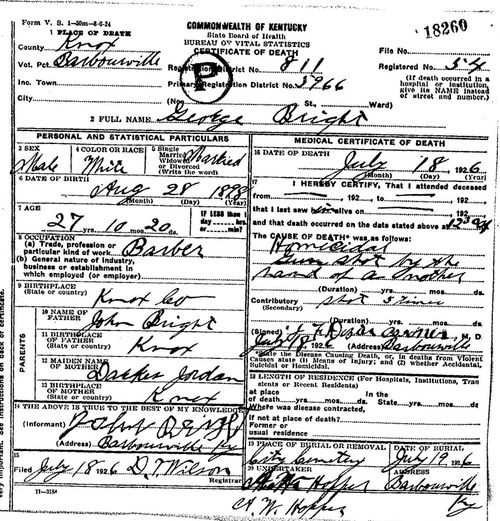 Form V. S. 1-50m-8-6-24
18260
COMMONWEALTH OF KENTUCKY
State Board of Health
BUREAU OF VITAL STATISTICS
CERTIFICATE OF DEATH
1 PLACE OF DEATH
County Knox
File No.
Vot. Pct. Barbourville
Registration District No. 811
Registered No. 54
P
Inc. Town
Primary Registration District No. 5966
(If death occurred in a hospital or institution, give its NAME instead of street and number.)
City
(No. St., Ward)
2 FULL NAME George Bright
PERSONAL AND STATISTICAL PARTICULARS
3 SEX Male
4 COLOR OR RACE White
5 Single Married Widowed or Divorced (Write the word) Married
6 DATE OF BIRTH
Aug 28 1898
(Month) (Day) (Year)
7 AGE
27 yrs. 10 mos. 20 ds.
IF LESS than 1 day hrs. or min.?
8 OCCUPATION
(a) Trade, profession or particular kind of work Barber
(b) General nature of industry, business or establishment in which employed (or employer)
9 BIRTHPLACE
(State or country) Knox Co
PARENTS
10 NAME OF FATHER John Bright
11 BIRTHPLACE OF FATHER
(State or country) Knox
12 MAIDEN NAME OF MOTHER Jordan
13 BIRTHPLACE OF MOTHER
(State or country) Knox
14 THE ABOVE IS TRUE TO THE BEST OF MY KNOWLEDGE
(Informant) John Bright
(Address) Barbourville Ky
15
Filed July 18 1926 D. T. Wilson
Registrar
11-3184
MEDICAL CERTIFICATE OF DEATH
16 DATE OF DEATH
July 18 1926
(Month) (Day) (Year)
17
I HEREBY CERTIFY, That I attended deceased
from , 192 , to , 192
that I last saw h alive on , 192
and that death occurred on the date stated above at 12
The CAUSE OF DEATH* was as follows:
Homicidal
Gun shot by the
hand of another
(Duration) yrs. mos. ds.
Contributory shot 5 times
(Secondary)
(Duration) yrs. mos. ds.
(Signed) M. D.
July 18, 1926 (Address) Barbourville
*State the Disease Causing Death, or, in deaths from Violent Causes state (1) Means of Injury; and (2) whether Accidental, Suicidal or Homicidal.
18 LENGTH OF RESIDENCE (For Hospitals, Institutions, Transients or Recent Residents)
at place of death yrs. mos. ds. State yrs. mos. ds.
Where was disease contracted,
if not at place of death?
Former or
usual residence
19 PLACE OF BURIAL OR REMOVAL
City Cemetery
DATE OF BURIAL
July 19 1926
20 UNDERTAKER
Hopper
ADDRESS
Barbourville
Ky
H. W. Hopper